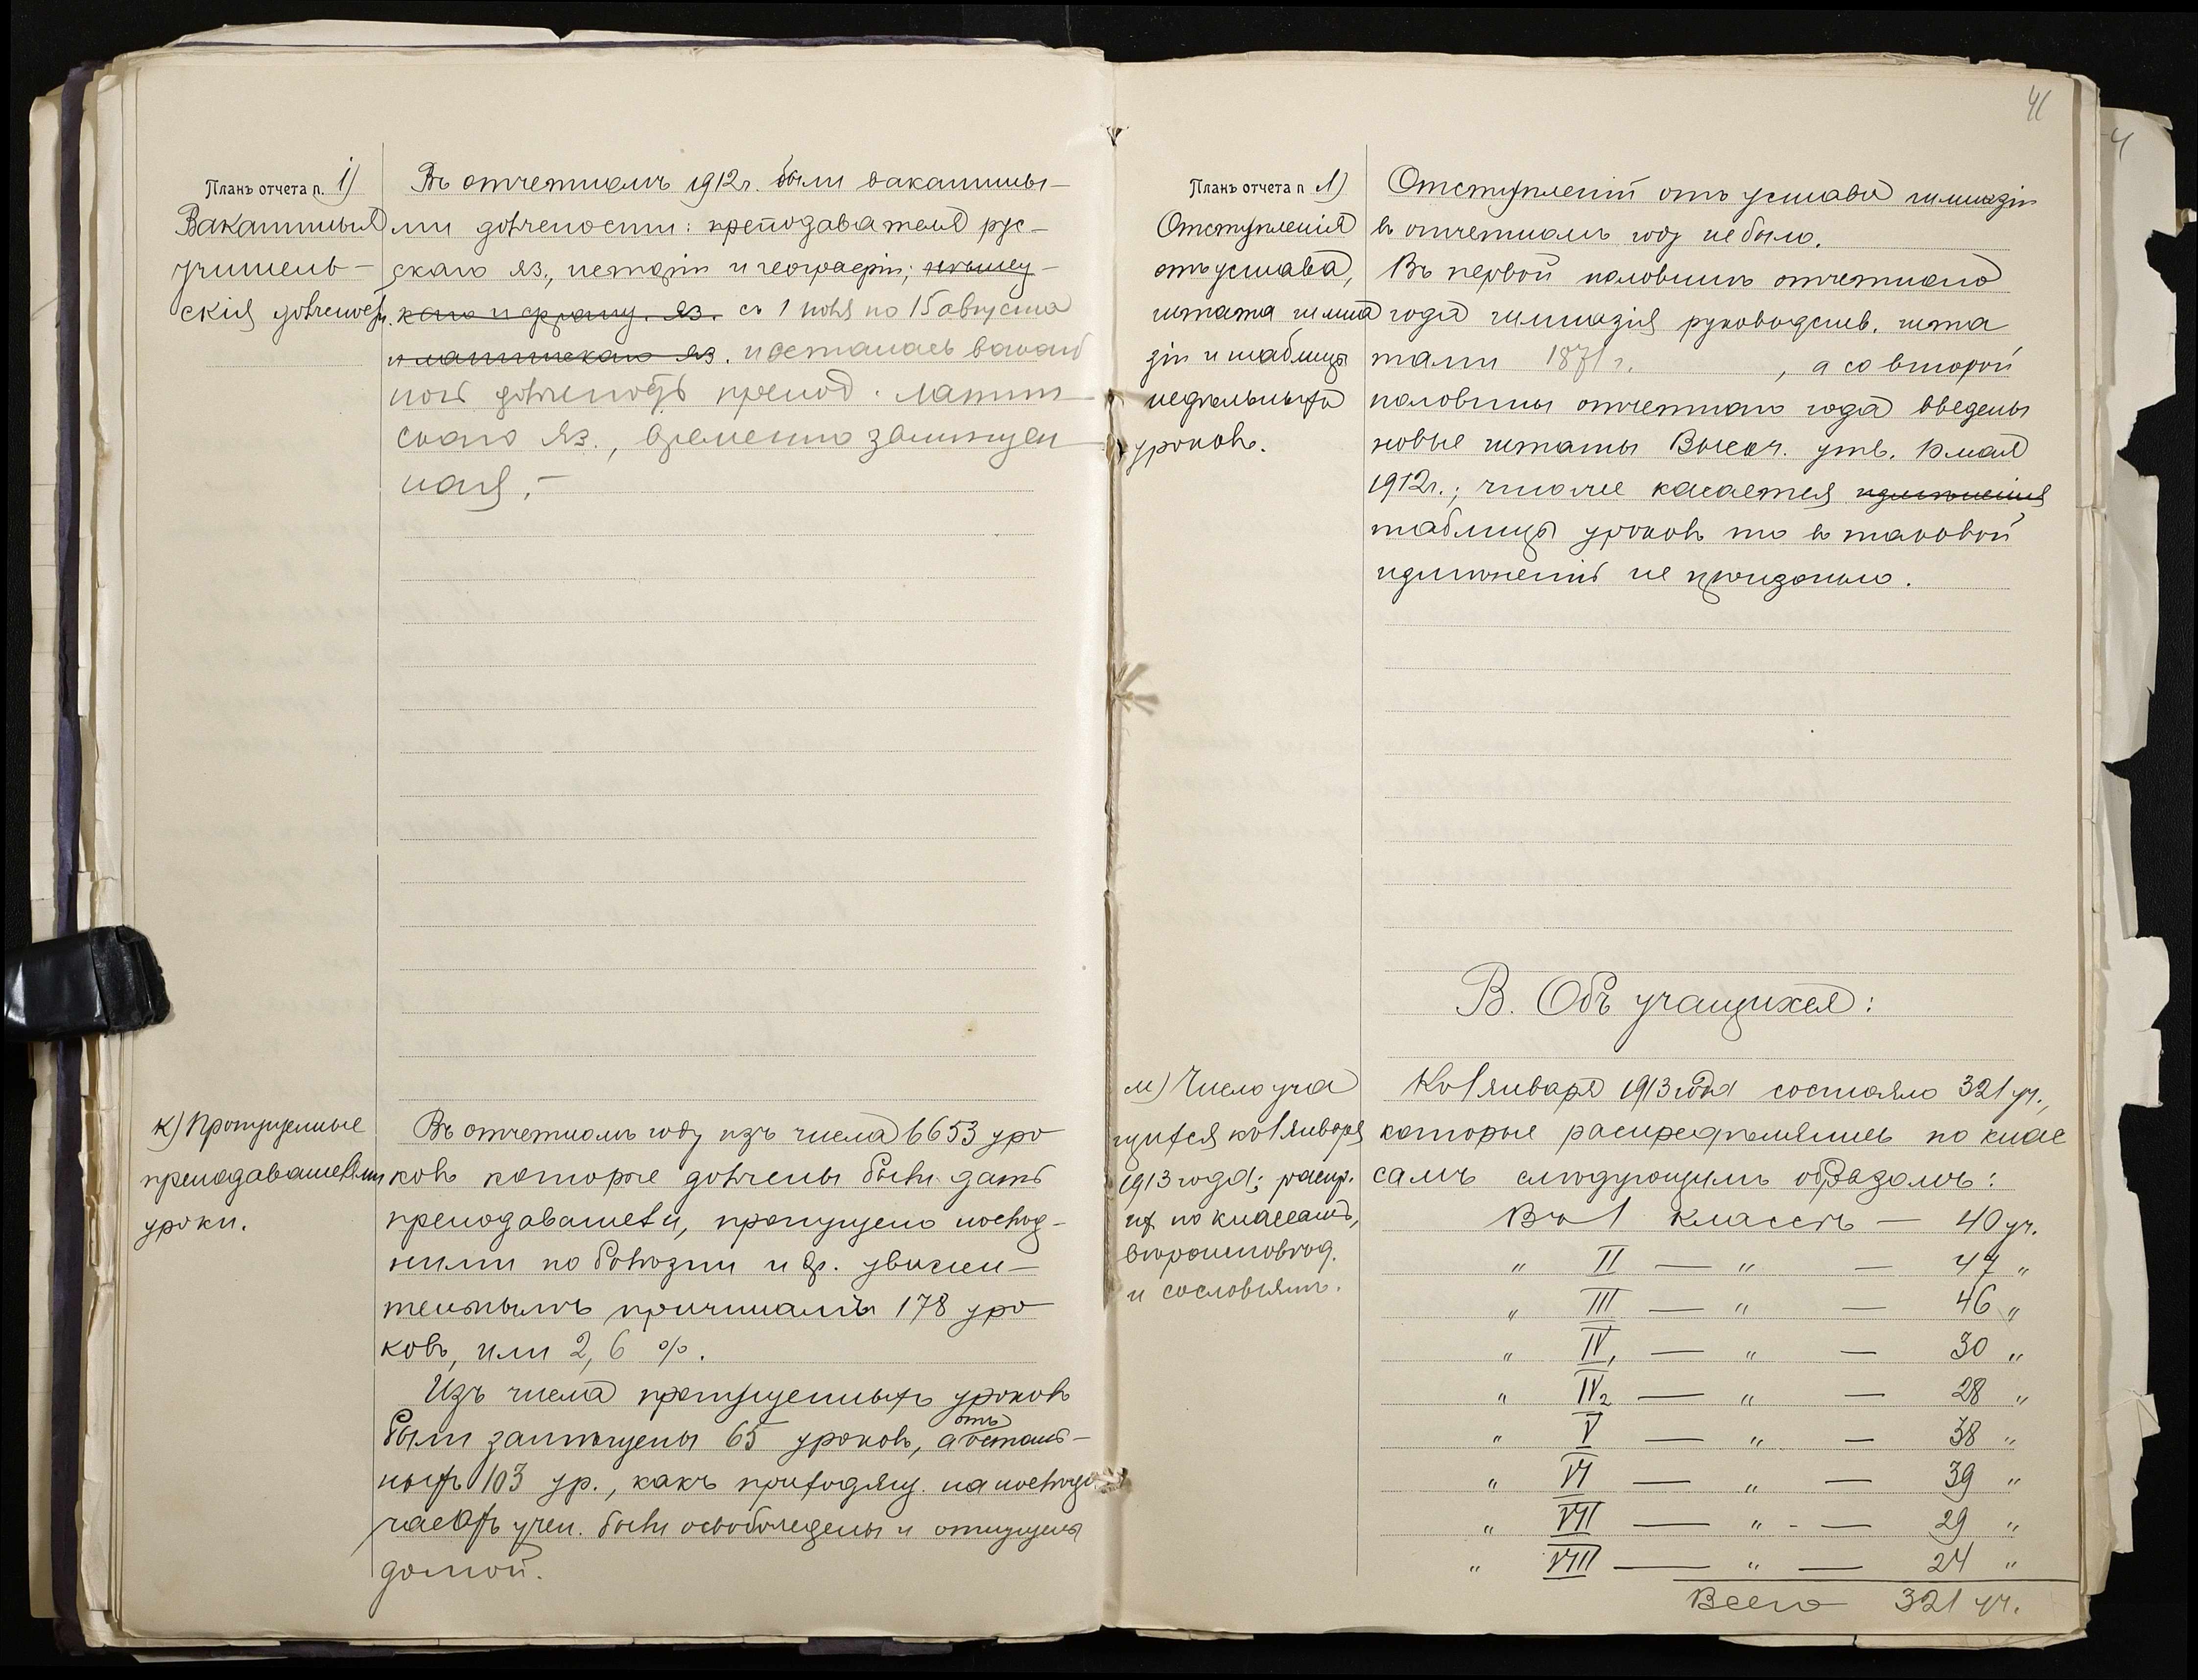 Планъ отчета п. i)
Вакантныя
учитель-
скія должност.
Въ отчетномъ 1912 г. были вакантны-
ми должности: преподавателя рус-
скаго яз., исторіи и географіи; нѣмец-
каго и франц. яз. съ 1 іюля по 15 августа
и латинскаго яз. и осталась вакант
ной должность препод. латин-
скаго яз., временно замѣщен
ная.-
к) Пропущенные
преподавателями
уроки.
Въ отчетномъ году изъ числа 6653 уро
ковъ которые должны были дать
преподаватели, пропущено послѣд-
ними по болѣзни и др. уважи-
тельнымъ причинамъ 178 уро
ковъ, или 2,6 %.
Изъ числа пропущенныхъ уроковъ
были замѣщены 65 уроковъ, а отъ осталь-
ныхъ 103 ур., какъ приходящ. на послѣдн.
часахъ учен. были освобождены и отпущены
домой.
41
Планъ отчета п л)
Отступленія
отъ устава,
штата гимна
зіи и таблицы
недѣльныхъ
уроковъ.
Отступленій отъ устава гимназіи
въ отчетномъ году не было.
Въ первой половинѣ отчетнаго
года гимназія руководств. шта
тами 1871 г. , а со второй
половины отчетнаго года введены
новые штаты Высоч. утв. 10 мая
1912 г.; что же касается измѣненія
таблицы уроковъ то въ таковой
измѣненій не произошло.
В. Объ учащихся:
м) Число уча
щихся къ 1 января
1913 года; распр.
их по классамъ,
вѣроисповѣд.
и сословіямъ.
Къ 1 января 1913 года состояло 321 уч.,
которые распредѣлялись по клас
самъ слѣдующимъ образомъ:
Въ I классѣ — 40 уч.
" II — " — 47 "
" III — " — 46 "
" IV₁ — " — 30 "
" IV₂ — " — 28 "
" V — " — 38 "
" VI — " — 39 "
" VII — " — 29 "
" VIII — " — 24 "
Всего 321 уч.